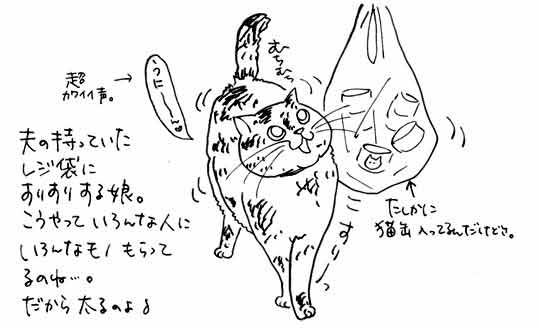 超
カワイイ声。
うにーーっ
むちむち
夫の持っていた
レジ袋に
すりすりする娘。
こうやっていろんな人に
いろんなモノもらって
るのね…。
だから太るのよ
すり
たしかに
猫缶入ってるんだけどさ。